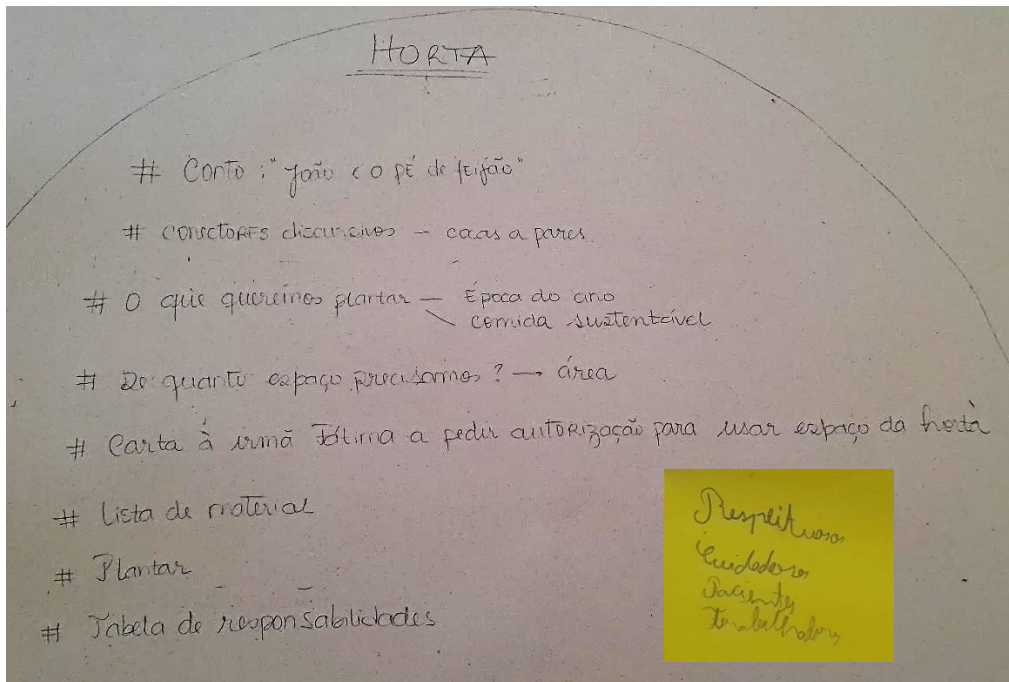 HORTA
# Conto: "João e o pé de feijão"
# conectores discursivos – coças a pares.
# O que queremos plantar – Época do ano
comida sustentável
# De quanto espaço precisamos? → área
# Carta à irmã Fátima a pedir autorização para usar espaço da horta
# Lista de material
# Plantar
# Tabela de responsabilidades
Respeituosos
Cuidadores
Pacientes
Trabalhadores